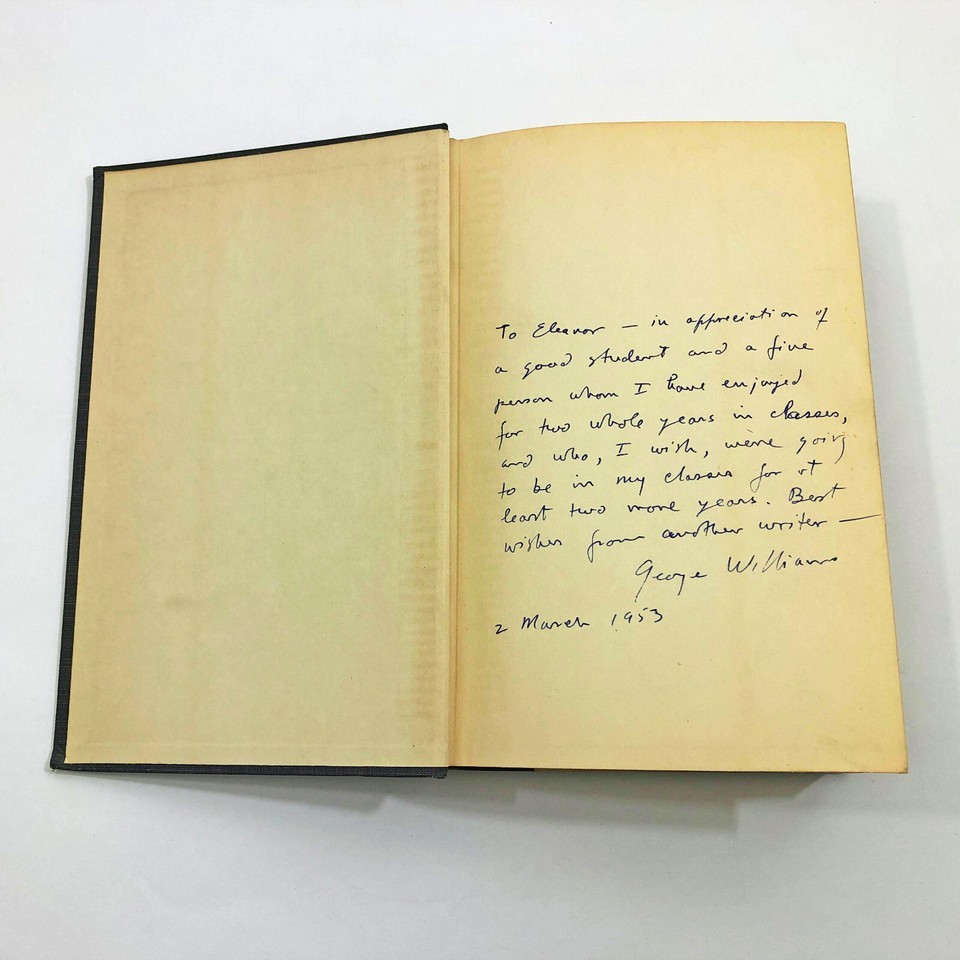 To Eleanor — in appreciation of
a good student and a fine
person whom I have enjoyed
for two whole years in classes,
and who, I wish, were going
to be in my classes for at
least two more years. Best
wishes from another writer —
George Williams
2 March 1953